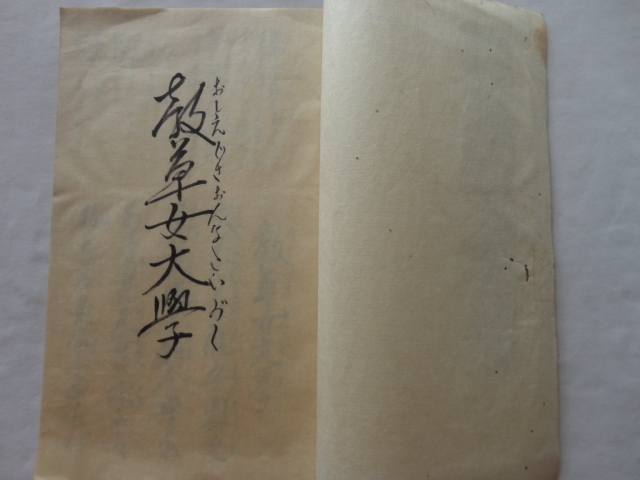 教草女大學
おしえぐさおんなだいがく